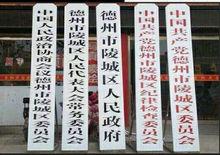 中国人民政治协商会议德州市陵城区委员会
德州市陵城区人民代表大会常务委员会
德州市陵城区人民政府
中国共产党德州市陵城区纪律检查委员会
中国共产党德州市陵城区委员会